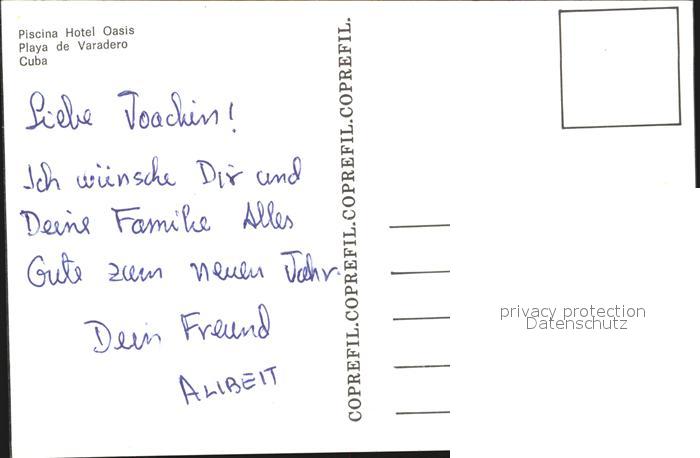 Piscina Hotel Oasis
Playa de Varadero
Cuba
Liebe Joachim!
Ich wünsche Dir und
Deine Familie Alles
Gute zum neuen Jahr.
Dein Freund
ALIBEIT
COPREFIL.COPREFIL.COPREFIL.COPREFIL.
privacy protection
Datenschutz